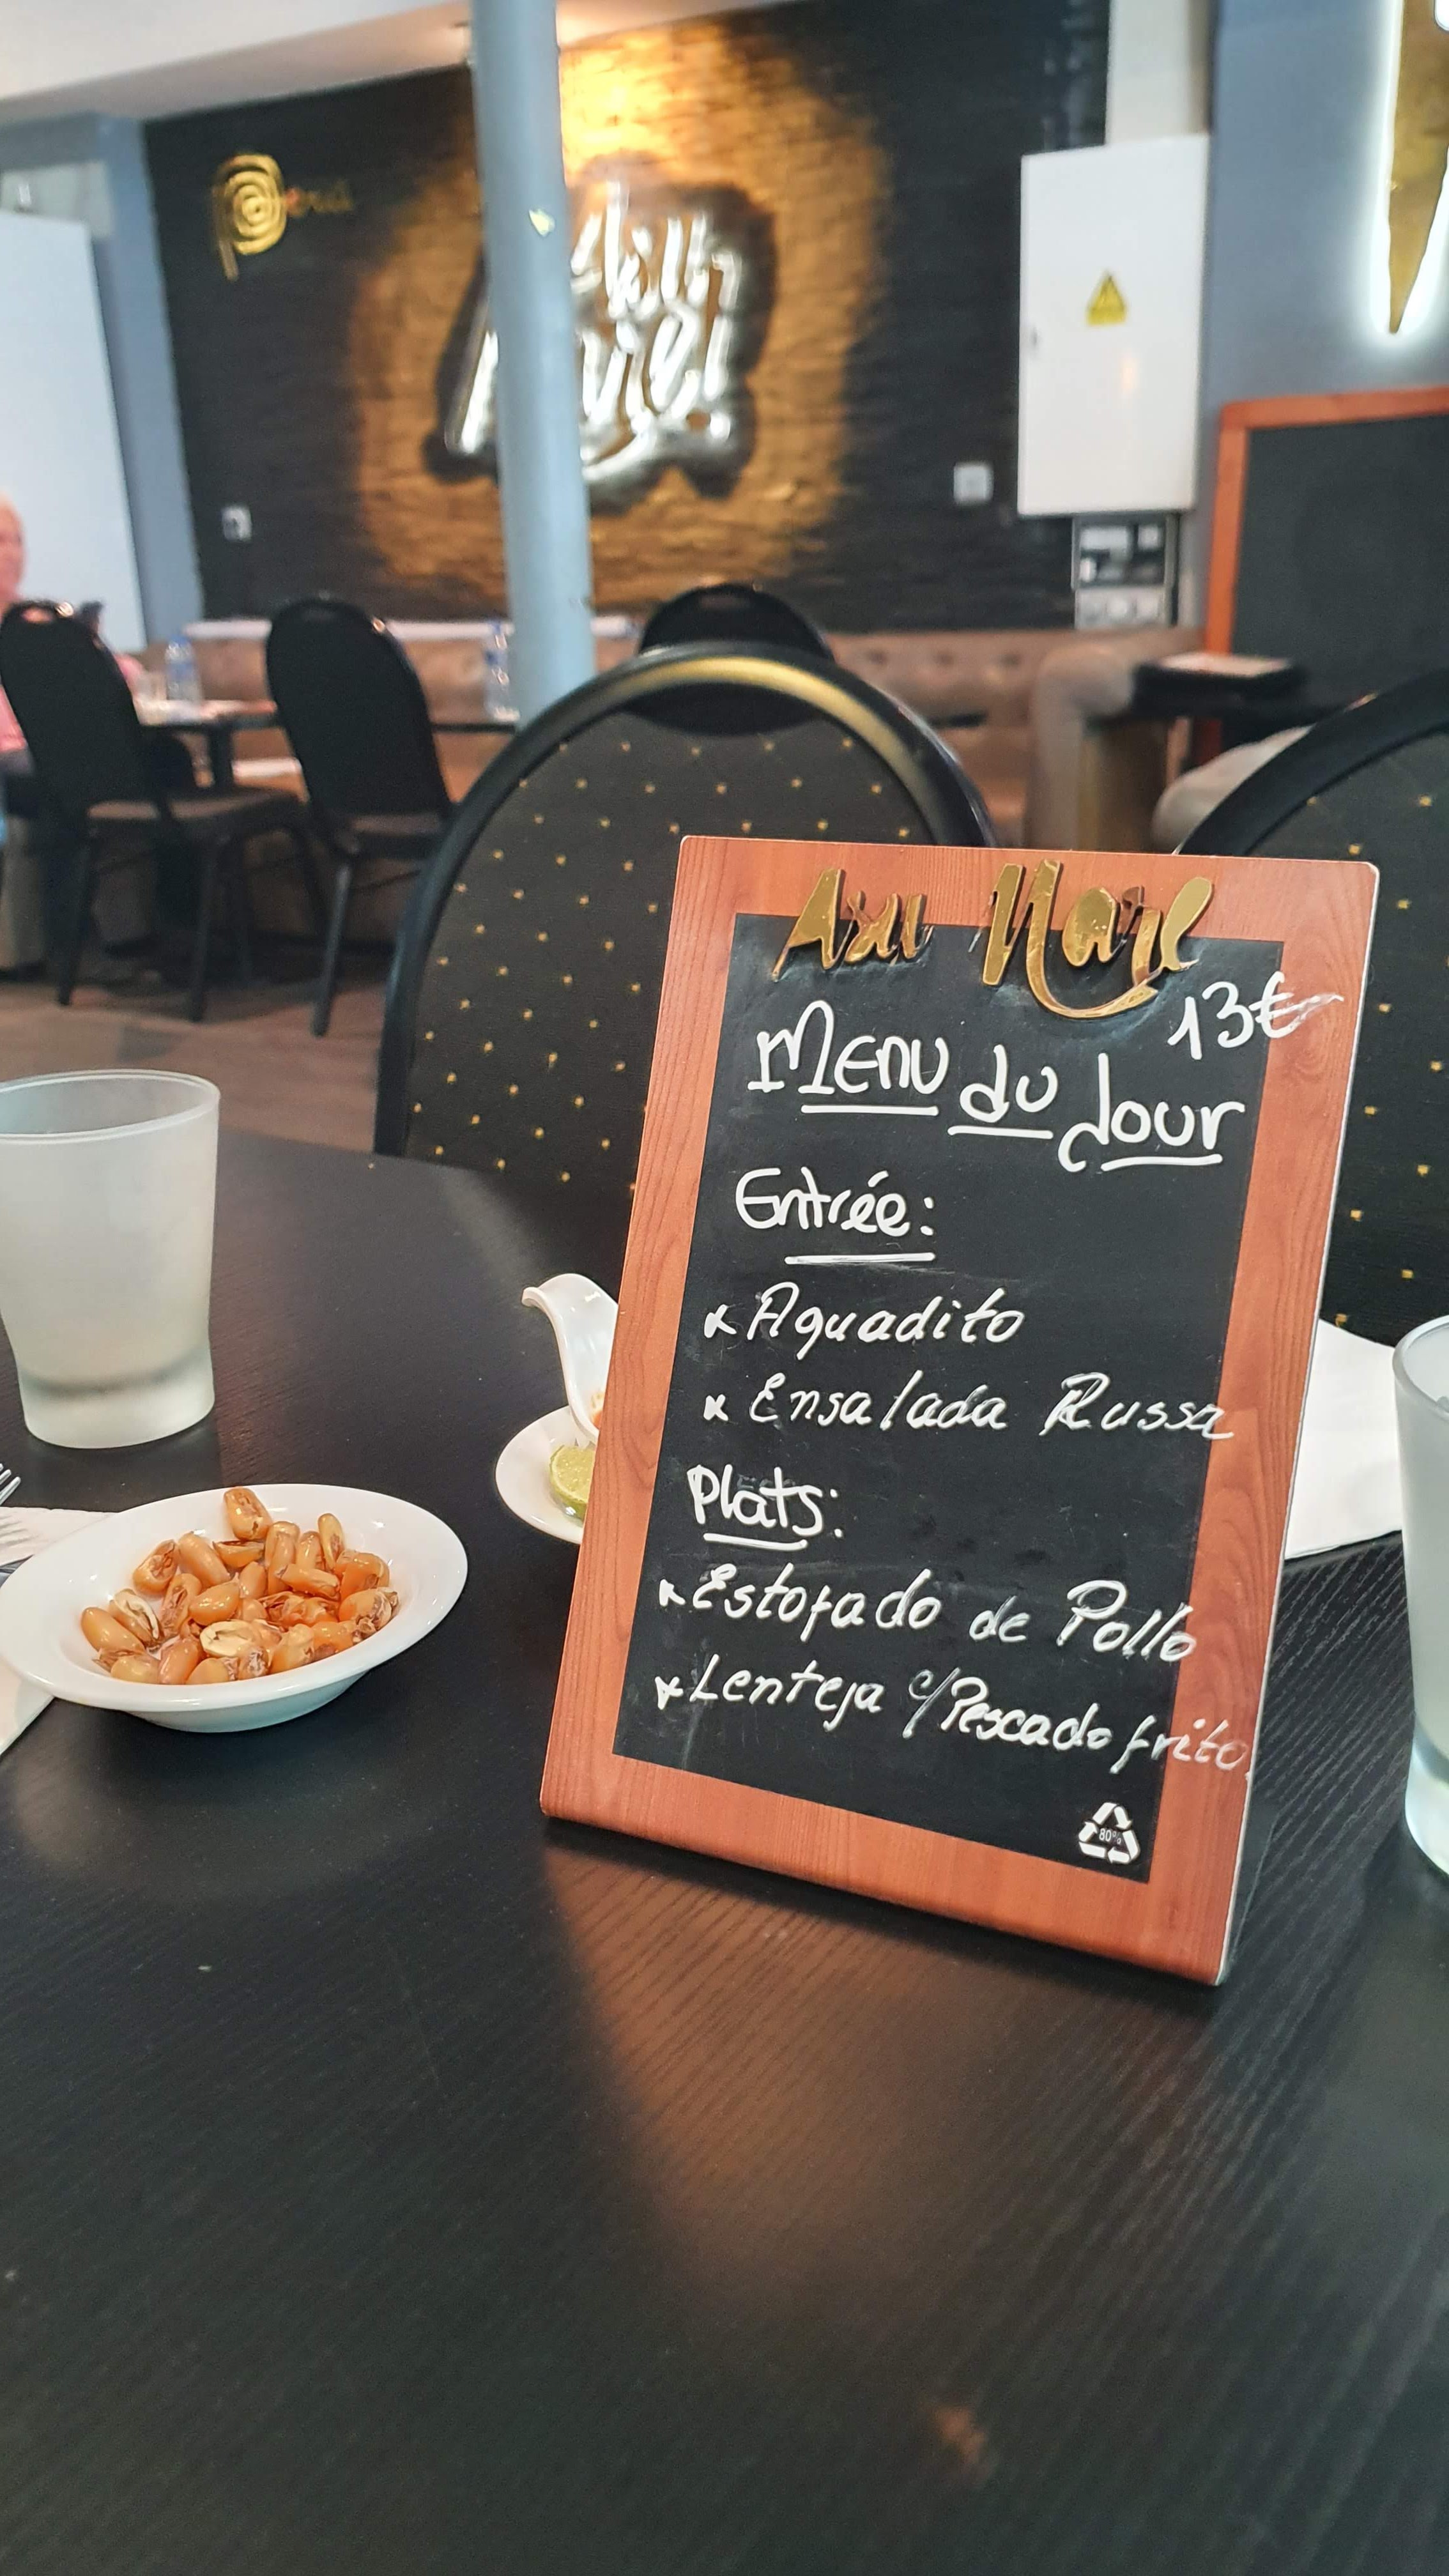 Perú
Asu Mare
13€
Menu du Jour
Entrée:
x Aguadito
x Ensalada Russa
Plats:
x Estofado de Pollo
x Lenteja c/Pescado frito
80%